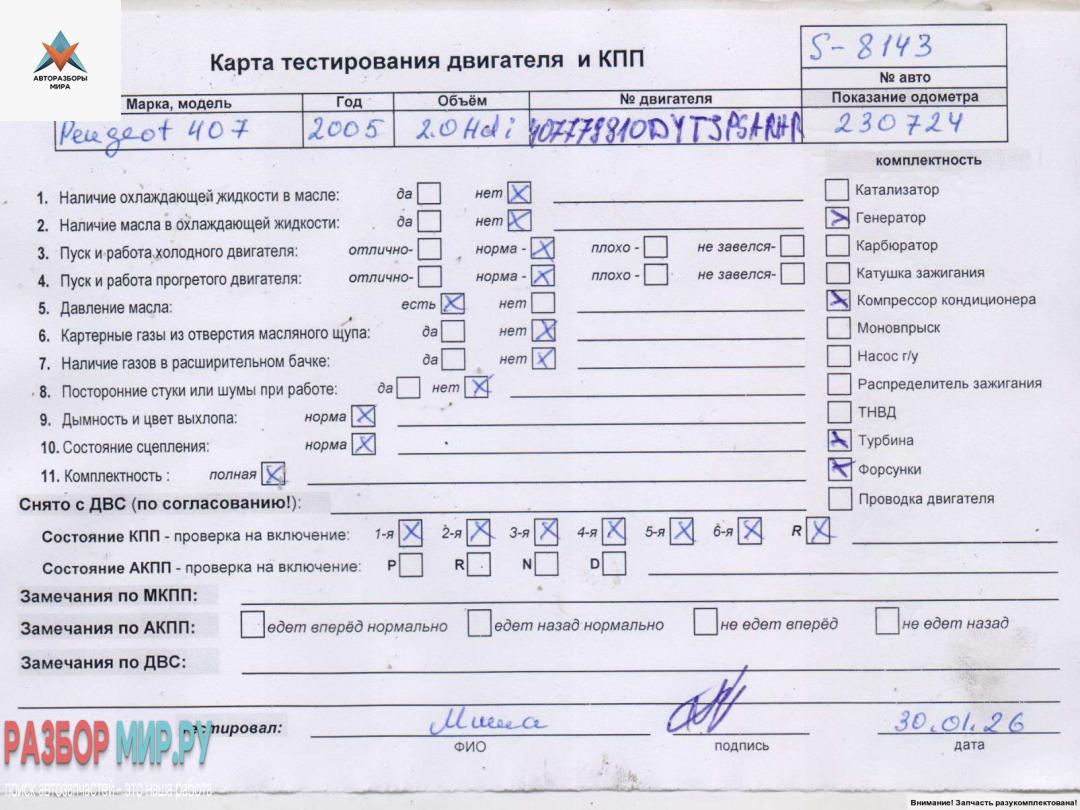 АВТОРАЗБОРЫ
МИРА
Карта тестирования двигателя и КПП
S-8143
№ авто
Марка, модель Год Объём № двигателя Показание одометра
Peugeot 407 2005 2.0 Hdi 230724
комплектность
1. Наличие охлаждающей жидкости в масле: да нет Х
Катализатор
2. Наличие масла в охлаждающей жидкости: да нет Х
Х Генератор
3. Пуск и работа холодного двигателя: отлично- норма - Х плохо - не завелся-
Карбюратор
4. Пуск и работа прогретого двигателя: отлично- норма - Х плохо - не завелся-
Катушка зажигания
5. Давление масла: есть Х нет
Х Компрессор кондиционера
6. Картерные газы из отверстия масляного щупа: да нет Х
Моновпрыск
7. Наличие газов в расширительном бачке: да нет Х
Насос г/у
8. Посторонние стуки или шумы при работе: да нет Х
Распределитель зажигания
9. Дымность и цвет выхлопа: норма Х
ТНВД
10. Состояние сцепления: норма Х
Х Турбина
11. Комплектность : полная Х
Х Форсунки
Снято с ДВС (по согласованию!):
Проводка двигателя
Состояние КПП - проверка на включение: 1-я Х 2-я Х 3-я Х 4-я Х 5-я Х 6-я Х R Х
Состояние АКПП - проверка на включение: P R N D
Замечания по МКПП:
Замечания по АКПП: едет вперёд нормально едет назад нормально не едет вперёд не едет назад
Замечания по ДВС:
тестировал: Миша 30.01.26
ФИО подпись дата
РАЗБОР МИР.РУ
поиск автозапчастей - это наша работа
Внимание! Запчасть разукомплектована!